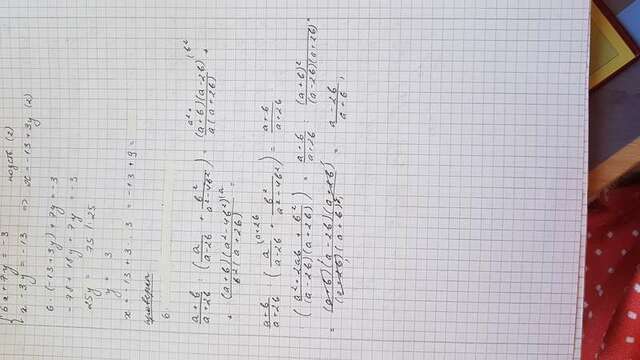 6x + 7y = -3
x - 3y = -13 => x = -13 + 3y (2)
6 · (-13 + 3y) + 7y = -3
-78 + 18y + 7y = -3
25y = 75 | : 25
y = 3
x = -13 + 3 · 3 = -13 + 9 =
проверка
6 ·
(a + b)/(a + 2b) : (a/(a - 2b) + b²/(a² - 4b²)) = (a + b)(a - 2b)/(a(a + 2b)) +
+ (a + b)(a² - 4b²)/(b²(a + 2b)) =
(a + b)/(a + 2b) : (a/(a - 2b) + b²/(a² - 4b²)) = (a + b)/(a + 2b)
((a² + 2ab + b²)/((a - 2b)(a + 2b))) = (a + b)/(a + 2b) : (a + b)²/((a - 2b)(a + 2b)) =
= (a + b)(a - 2b)(a + 2b)/((a + 2b)(a + b)²) = (a - 2b)/(a + b)